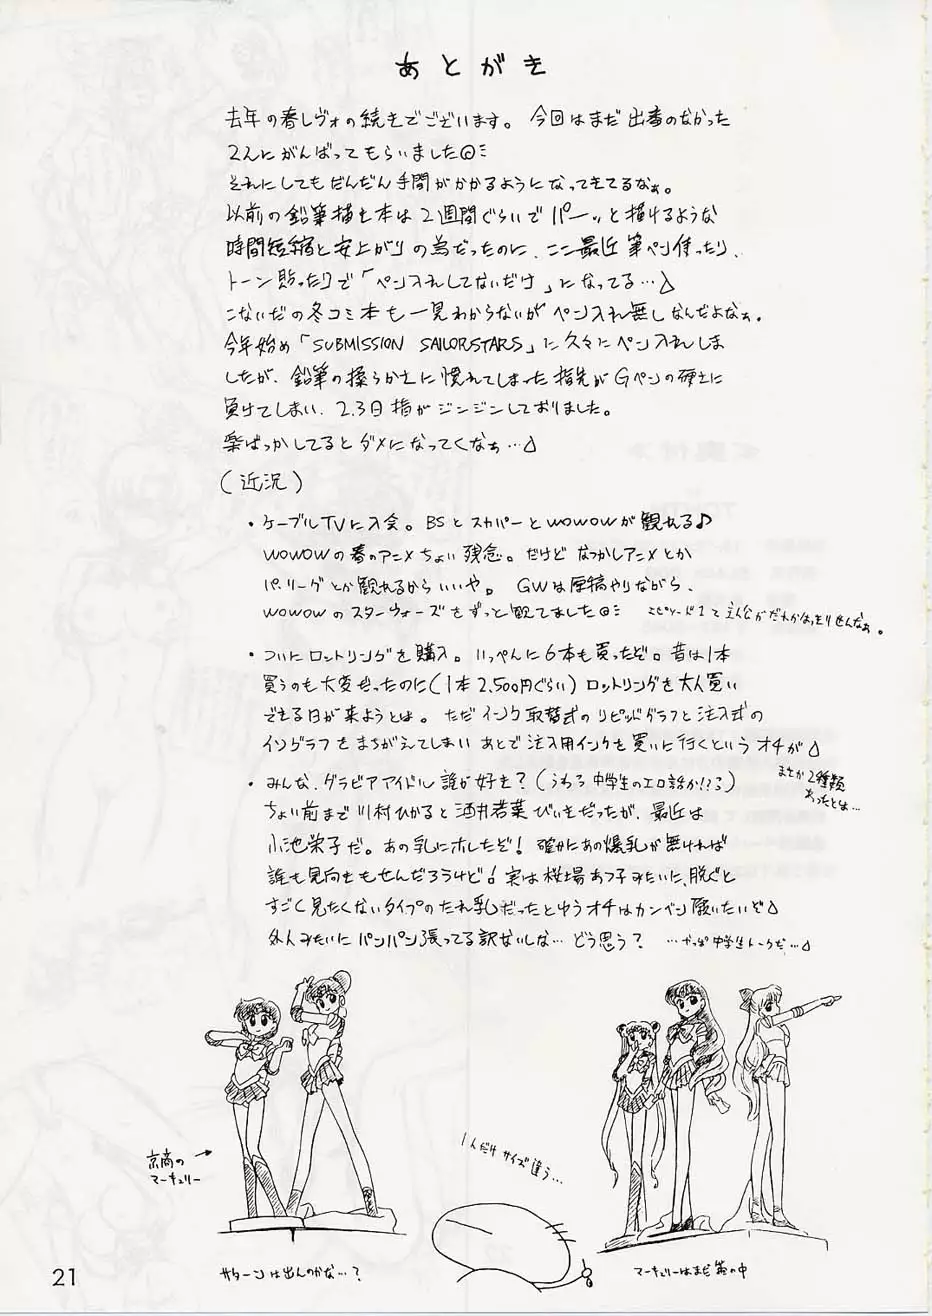 あとがき
去年の春レヴォの続きでございます。今回はまだ出番のなかった
2人にがんばってもらいました◎ミ
それにしてもだんだん手間がかかるようになってきてるなぁ。
以前の鉛筆描き本は2週間ぐらいでパーッと描けるような
時間短縮と安上がりの為だったのに、ここ最近筆ペン使ったり、
トーン貼ったりで「ペン入れしてないだけ」になってる…△
こないだの冬コミ本も一見わからないがペン入れ無しなんだよなぁ。
今年始め「SUBMISSION SAILORSTARS」に久々にペン入れしま
したが、鉛筆の柔らかさに慣れてしまった指先がGペンの硬さに
負けてしまい、2.3日指がジンジンしておりました。
楽ばっかしてるとダメになってくなぁ…△
(近況)
・ケーブルTVに入会。BSとスカパーとWOWOWが観れる♪
WOWOWの春のアニメちょい残念。だけどなつかしアニメとか
パ・リーグとか観れるからいいや。GWは原稿やりながら、
WOWOWのスターウォーズをずっと観てました◎ミ エピソード1って主人公がだれかはっきりせんなぁ。
・ついにロットリングを購入。いっぺんに6本も買ったぞ。昔は1本
買うのも大変だったのに(1本2,500円ぐらい)ロットリングを大人買い
できる日が来ようとは。ただインク取替式のラピッドグラフと注入式の
イソグラフをまちがえてしまいあとで注入用インクを買いに行くというオチが△
まさか2種類
あったとは…
・みんな、グラビアアイドル誰が好き?(うわっ中学生のエロ話か!?る)
ちょい前まで川村ひかると酒井若菜びいきだったが、最近は
小池栄子だ。あの乳にホレたぞ!確かにあの爆乳が無ければ
誰も見向きもせんだろうけど!実は桜場あつ子みたいに、脱ぐと
すごく見たくないタイプのたれ乳だったとゆうオチはカンベン願いたいぞ△
外人みたいにパンパン張ってる訳ないしな…どう思う? …やっぱ中学生トークだ…△
京商の
マーキュリー
1人だけサイズ違う…
サターンは出んのかな…?
マーキュリーはまだ箱の中
21